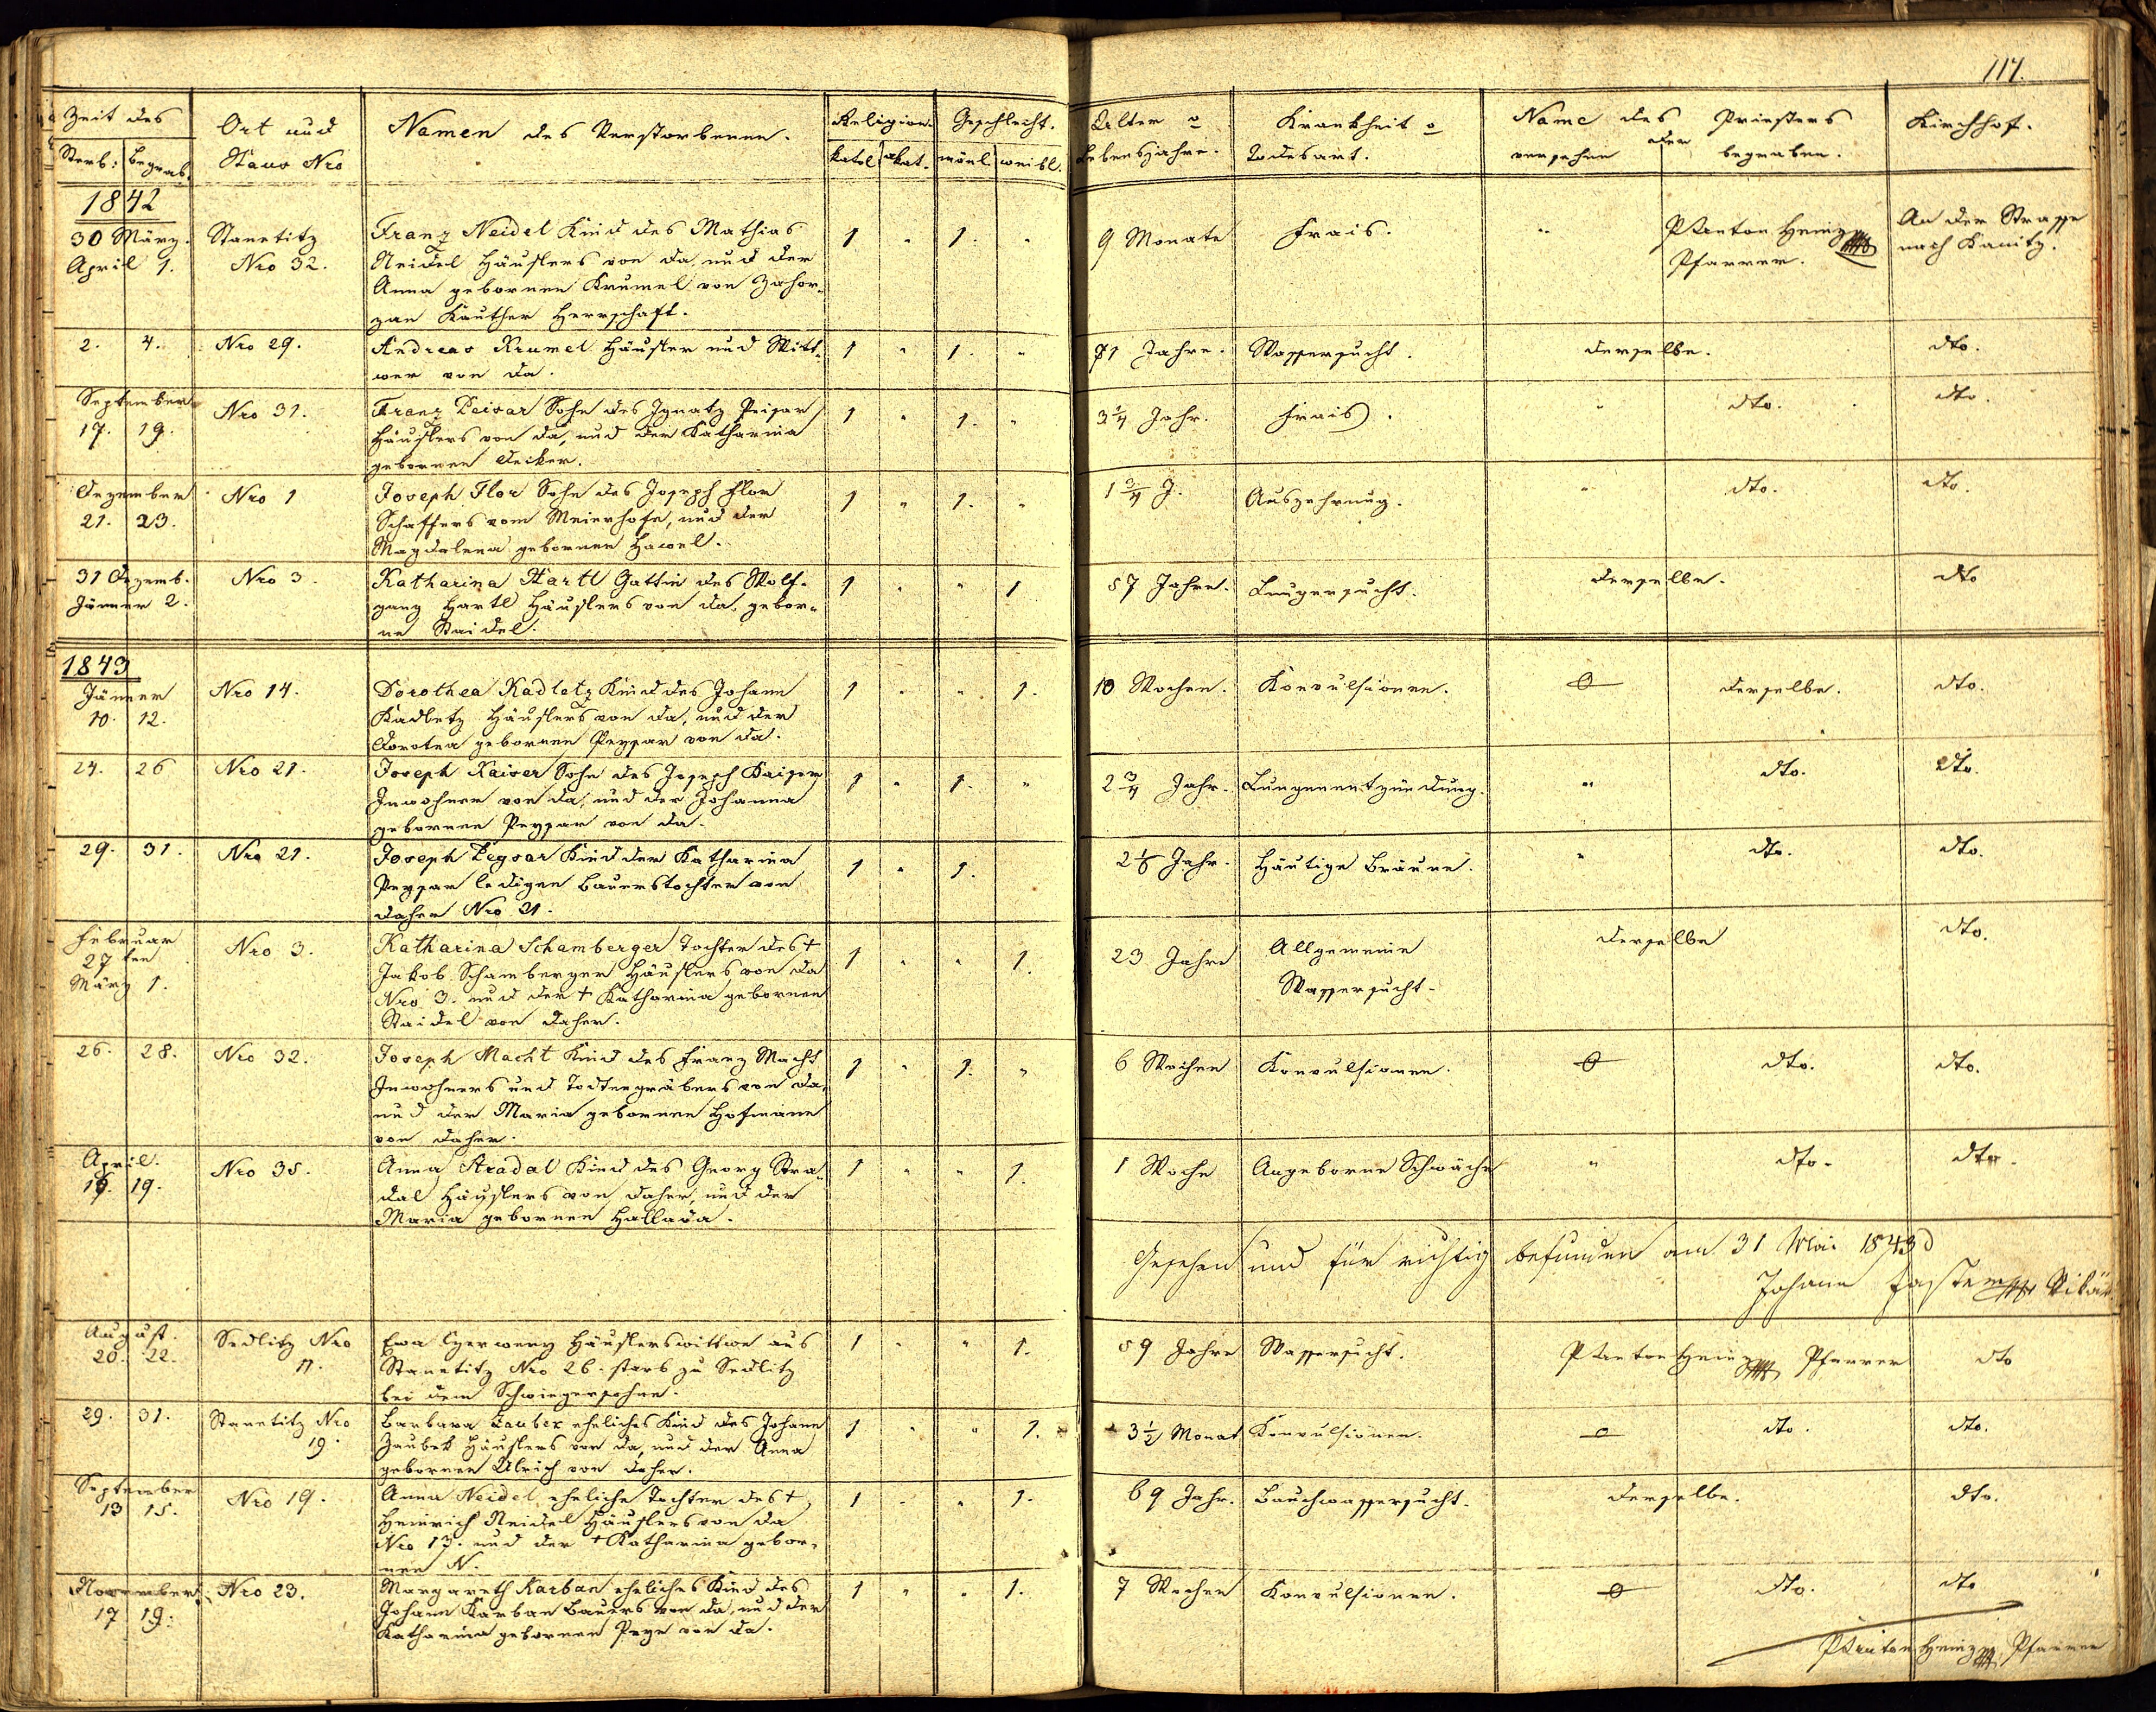 117.
Zeit des
Sterb: Begrab.
Ort und
Haus Nro
Namen des Verstorbenen.
Religion.
katol. akat.
Geschlecht.
mänl. weibl.
Alter o
Lebensjahre.
Krankheit o
Todesart.
Name des Priesters
versehen der begraben.
Kirchhof.
1842
30 März.
April 1.
Stanetitz
Nro 32.
Franz Neidel Kind des Mathias
Neidel Häuslers von da, und der
Anna gebornen Krumel von Zahor„
zan Kauther Herrschaft.
1 " 1. "
9 Monate
Frais.
"
P Anton Heinz
Pfarrer.
An der Strasse
nach Kanitz.
2. 4.
Nro 29.
Andreas Krumel Häusler und Witt„
wer von da.
1 " 1. "
81 Jahre.
Wassersucht.
derselbe.
dto.
September
17. 19.
Nro 31.
Franz Peisar Sohn des Ignatz Peisar
Häuslers von da, und der Katharina
gebornen Decker.
1 " 1. "
3 1/4 Jahr.
Frais.
"
dto.
dto.
Dezember
21. 23.
Nro 1
Joseph Flor Sohn des Joseph Flor
Schaffers vom Meierhofe, und der
Magdalena gebornen Hawel.
1 " 1. "
1 3/4 J.
Auszehrung.
"
dto.
dto.
31 Dezemb.
Jänner 2.
Nro 3.
Katharina Hartl Gattin des Wolf„
gang Hartl Häuslers von da, gebor„
ne Staidel.
1 " " 1
57 Jahre.
Lungersucht.
derselbe.
dto
1843
Jänner
10. 12.
Nro 14.
Dorothea Kadletz Kind des Johann
Kadletz Häuslers von da, und der
Dorotea gebornen Peysar von da.
1 " " 1.
10 Wochen.
Konvulsionen.
0
derselbe.
dto.
24. 26
Nro 21.
Joseph Kaiser Sohn des Joseph Kaiser
Inwohner von da, und der Johanna
gebornen Peysar von da.
1 " 1. "
2 3/4 Jahr.
Lungenentzündung.
"
dto.
dto.
29. 31.
Nro 21.
Joseph Peysar Kind der Katharina
Peysar ledigen Bauerstochter von
daher Nro 21.
1 " 1.
Häutige Bräune.
"
dto.
dto.
Februar
27 ten
März 1.
Nro 3.
Katharina Schamberger Tochter des †
Jakob Schamberger Häuslers von da
Nro 3. und der † Katharina gebornen
Staidel von daher.
1 " " 1.
23 Jahre
Allgemeine
Wassersucht.
derselbe
dto.
26. 28.
Nro 32.
Joseph Macht Kind des Franz Macht
Inwohners und Todtengräbers von da,
und der Maria gebornen Hofmann
von daher.
1 " 1. "
6 Wochen
Konvulsionen.
0
dto.
dto.
April.
19.
Nro 35.
Anna Stradal Kind des Georg Stra„
dal Häuslers von daher, und der
Maria gebornen Hallada.
1 " " 1.
1 Woche
Angeborne Schwäche
"
dto.
dto.
Gesehen und für richtig befunden am 31 Mai 1843
Johann Vikär
August.
20. 22.
Sedlitz Nro
11.
Ewa Czerweny Häuslerswittwe aus
Stanetitz Nro 26. starb zu Sedlitz
bei dem Schwiegersohne.
1 " " 1.
59 Jahre
Wassersucht.
P Anton Heinz Pfarrer
dto
29. 31.
Stanetitz Nro
19.
Barbara Zaubek eheliches Kind des Johann
Zaubek Häuslers von da, und der Anna
gebornen Ulrich von daher.
1 " " 1.
3 1/2 Monat
Konvulsionen.
0
dto.
dto.
September
13 15.
Nro 19.
Anna Neidel eheliche Tochter des †
Heinrich Neidel Häuslers von da
Nro 13. und der † Katharina gebor„
nen N.
1 " " 1.
69 Jahr.
Bauchwassersucht.
derselbe.
dto.
November
17 19.
Nro 23.
Margareth Karban eheliches Kind des
Johann Karban Bauers von da, und der
Katharina gebornen Peyr von da.
1 " " 1.
7 Wochen
Konvulsionen.
0
dto.
dto
P Anton Heinz Pfarrer